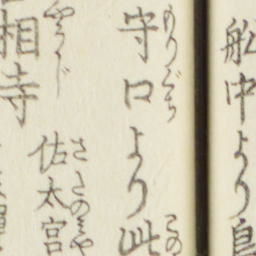 船中より鳥
守口より此
もりぐち
この
佐太宮
さたのみや
相寺